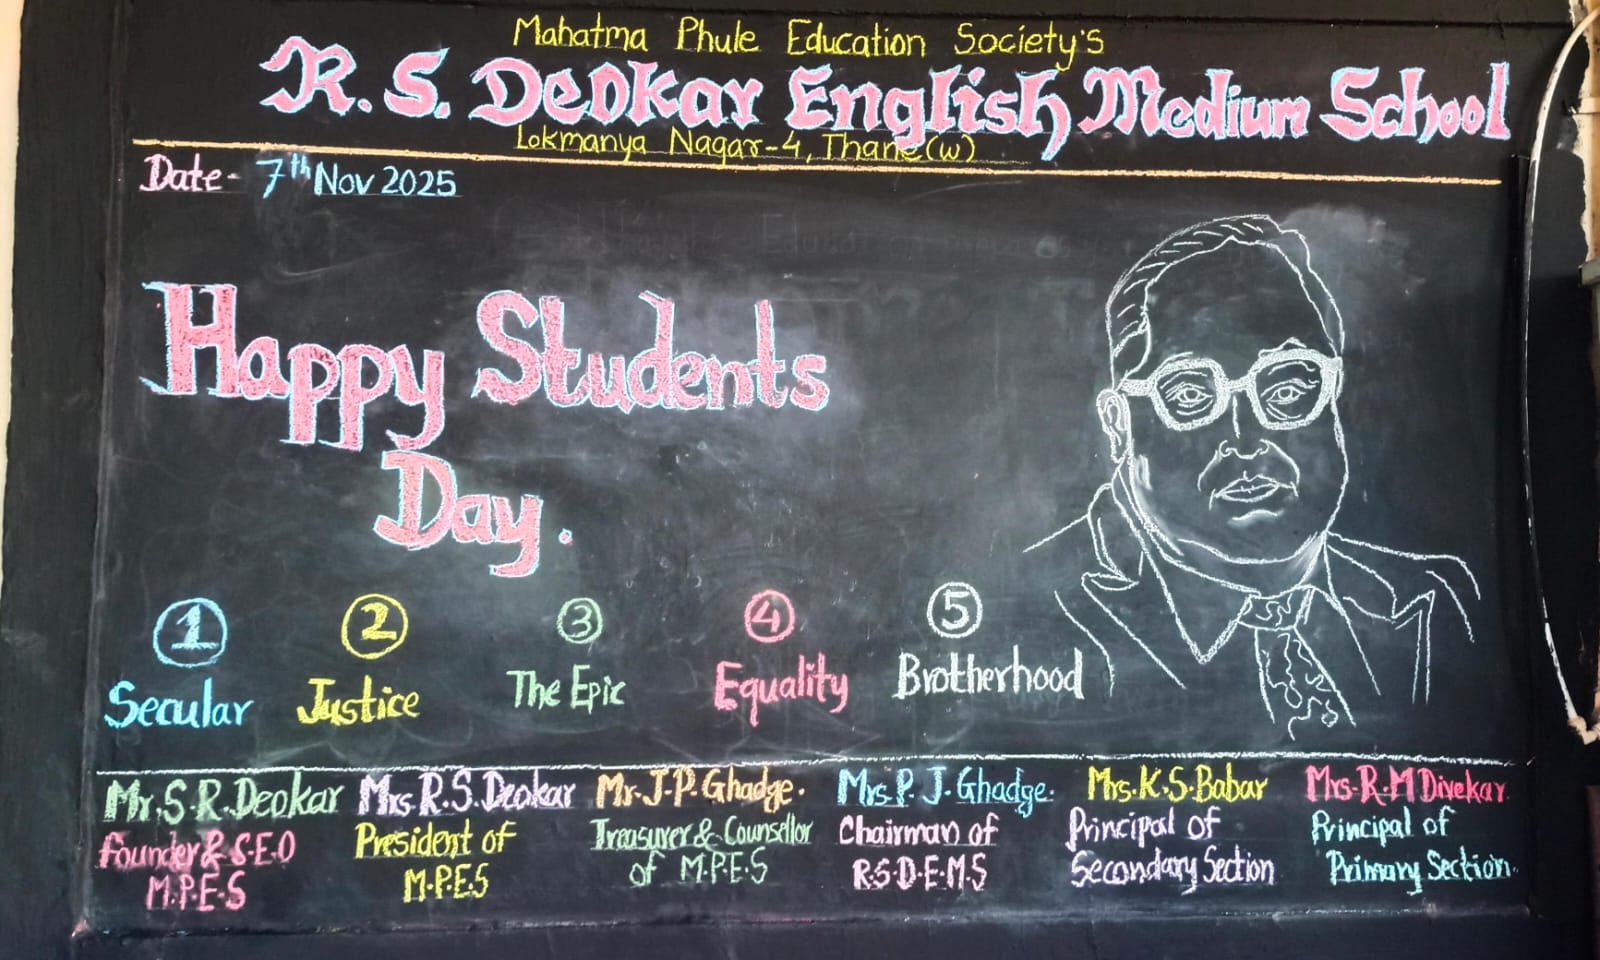 Mahatma Phule Education Society's
R. S. Deokar English Medium School
Lokmanya Nagar-4, Thane(w)
Date- 7th Nov 2025
Happy Students
Day.
1 2 3 4 5
Secular Justice The Epic Equality Brotherhood
Mr.S.R.Deokar Mrs R.S.Deokar Mr.J.P.Ghadge. Mrs.P.J.Ghadge. Mrs.K.S.Babar Mrs.R.M Divekar
Founder & S.E.O President of Treasurer & Counsellor Chairman of Principal of Principal of
M.P.E.S M.P.E.S of M.P.E.S R.S.D.E.M.S Secondary Section Primary Section.